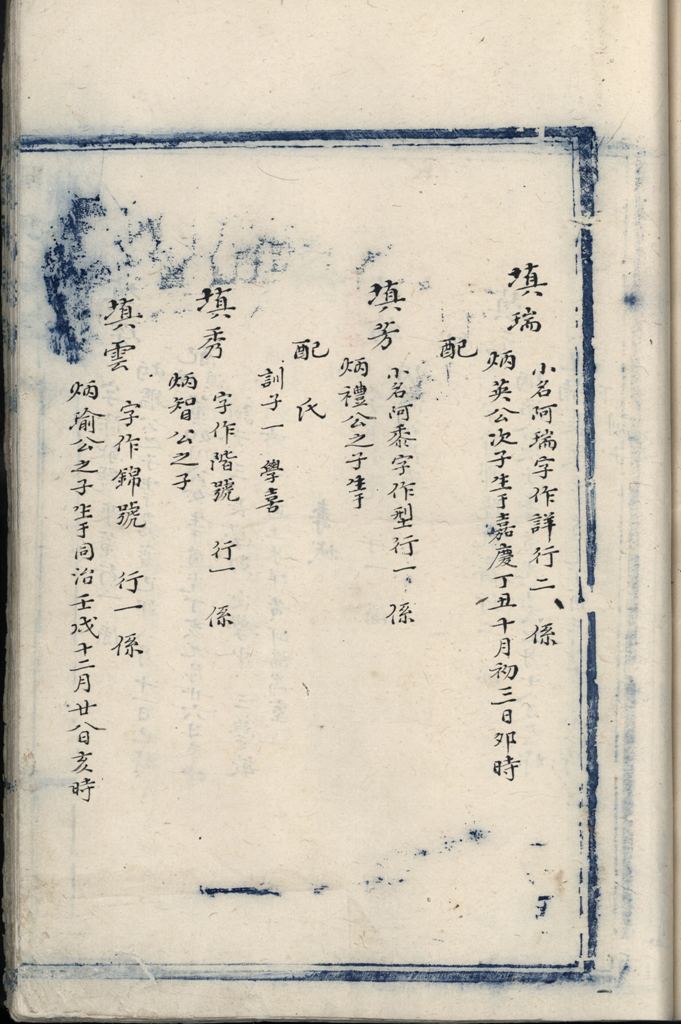 填瑞
小名阿瑞字作詳行二係
炳英公次子生于嘉慶丁丑十月初三日夘時
配
填芳
小名阿黍字作型行一係
炳禮公之子生于
配 氏
訓子一 學喜
填秀
字作階號 行一 係
炳智公之子
填雲
字作錦號 行一係
炳瑜公之子生于同治壬戌十二月廿八日亥時